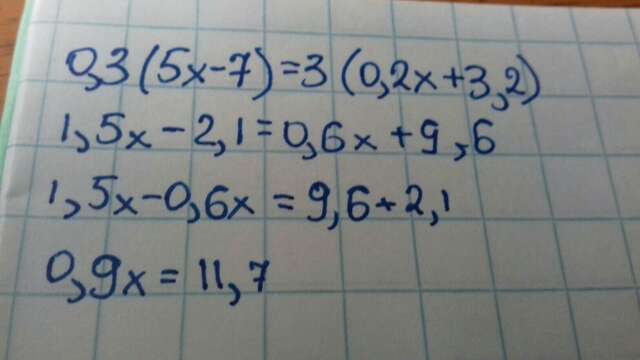 0,3(5x-7)=3(0,2x+3,2)
1,5x-2,1=0,6x+9,6
1,5x-0,6x=9,6+2,1
0,9x=11,7